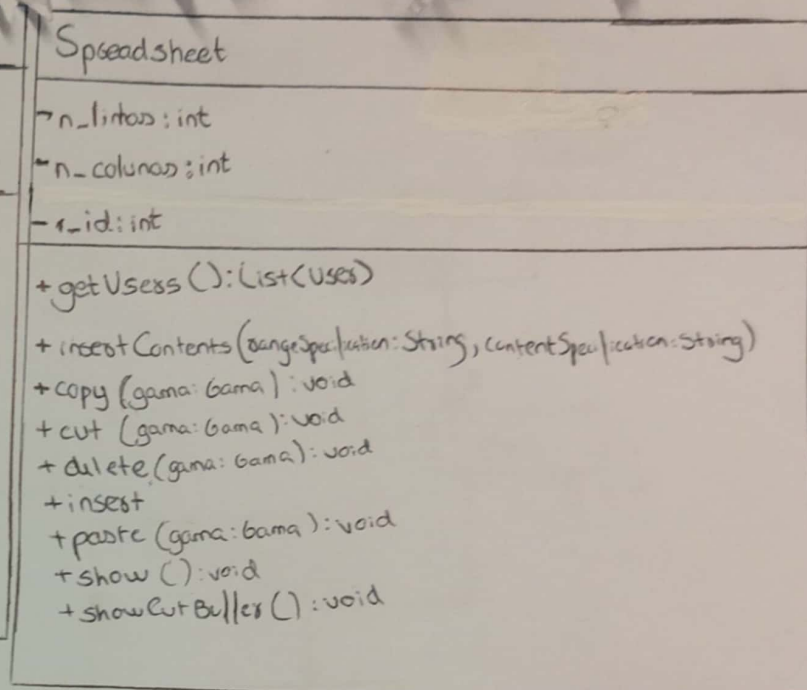 Spreadsheet
- n_linhas: int
- n_colunas: int
- s_id: int
+ getUsers(): List<User>
+ insertContents(rangeSpecification: String, contentSpecification: String)
+ copy (gama: Gama): void
+ cut (gama: Gama): void
+ delete (gama: Gama): void
+ insert
+ paste (gama: Gama): void
+ show (): void
+ showCutBuffer(): void